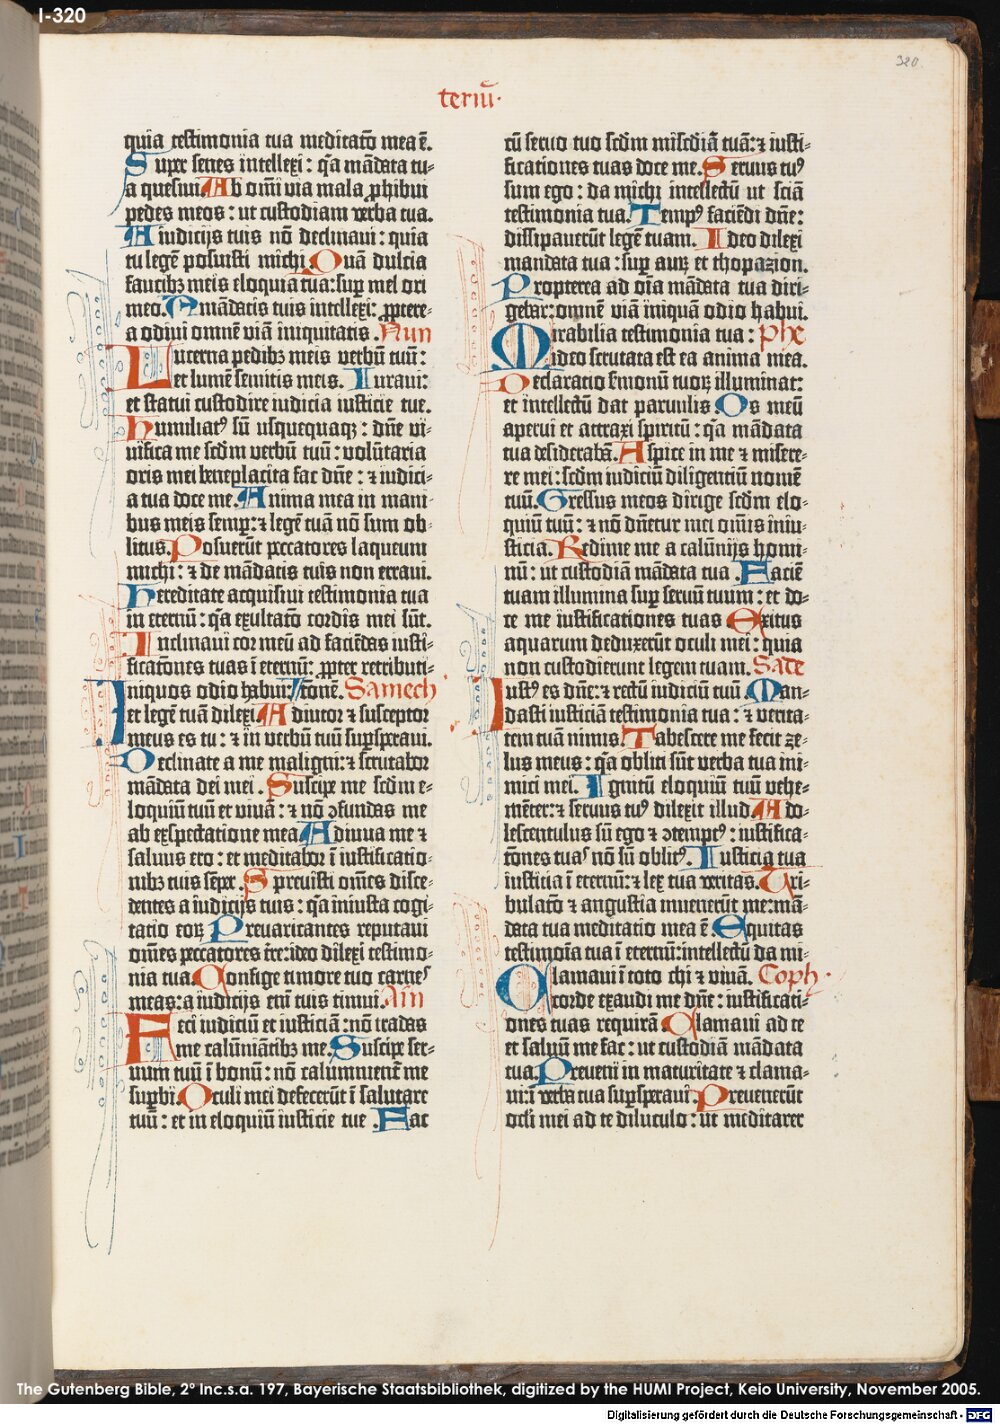 I-320
320.
teriū·
quia testimonia tua meditatō mea ē.
Super senes intellexi : q̄a mādata tu⸗
a quesiui. Ab omī via mala ꝓhibui
pedes meos : ut custodiam verba tua.
A iudicijs tuis nō declinaui : quia
tu legē posuisti michi. Quā dulcia
faucibꝫ meis eloquia tua : suꝑ mel ori
meo. A mādatis tuis intellexi : ꝓptere⸗
a odiui omnē viā iniquitatis . Nun
Lucerna pedibꝫ meis verbū tuū :
et lumē semitis meis. Iuraui :
et statui custodire iudicia iusticie tue.
Humiliatꝰ sū usquequaqꝫ : dn̄e vi⸗
uifica me scd̄m verbū tuū : volūtaria
oris mei beneplacita fac dn̄e : ⁊ iudici⸗
a tua doce me. Anima mea in mani⸗
bus meis semꝑ : ⁊ legē tuā nō sum ob⸗
litus. Posuerūt peccatores laqueum
michi : ⁊ de mādatis tuis non erraui.
Hereditate acquisiui testimonia tua
in eternū : q̄a exultatō cordis mei sūt.
Inclinaui cor meū ad faciēdas iusti⸗
ficatōnes tuas ī eternū : ꝓpter retributi⸗
Iniquos odio habui : /tonē. Samech
et legē tuā dilexi. Adiutor ⁊ susceptor
meus es tu : ⁊ in verbū tuū suꝑsperaui.
Declinate a me maligni : ⁊ scrutabor
mādata dei mei . Suscipe me scd̄m e⸗
loquiū tuū et viuā : ⁊ nō ↄfundas me
ab exspectatione mea. Adiuua me ⁊
saluus ero : et meditabor ī iustificatio⸗
nibꝫ tuis sēper. Spreuisti om̄es disce⸗
dentes a iudicijs tuis : q̄a iniusta cogi⸗
tatio eoꝝ. Preuaricantes reputaui
om̄es peccatores t̄re : ideo dilexi testimo⸗
nia tua. Confige timore tuo carnes
meas : a iudicijs eni tuis timui. Ain
Feci iudiciū et iusticiā : nō tradas
me calūniātibꝫ me. Suscipe ser⸗
uum tuū ī bonū : nō calumnient̄ me
suꝑbi. Oculi mei defecerūt ī salutare
tuū : et in eloquiū iusticie tue . Fac
cū seruo tuo scd̄m mi̅scdiā tuā : ⁊ iusti⸗
ficationes tuas doce me. Seruus tuꝰ
sum ego : da michi intellectū ut sciā
testimonia tua. Tempꝰ faciēdi dn̄e :
dissipauerūt legē tuam. Ideo dilexi
mandata tua : suꝑ auꝝ et thopazion.
Propterea ad oīa mādata tua diri⸗
gebar : omnē viā iniquā odio habui.
Mirabilia testimonia tua : Phe
ideo scrutata est ea anima mea.
Declaratio s̄monū tuoꝝ illuminat :
et intellectū dat paruulis. Os meū
aperui et attraxi spiritū : q̄a mādata
tua desiderabā. Aspice in me ⁊ misere⸗
re mei : scd̄m iudiciū diligentiū nomē
tuū. Gressus meos dirige scd̄m elo⸗
quiū tuū : ⁊ nō dn̄etur mei om̄is iniu⸗
sticia. Redime me a calūnijs homi⸗
nū : ut custodiā mādata tua . Faciē
tuam illumina suꝑ seruū tuum : et do⸗
ce me iustificationes tuas Exitus
aquarum deduxerūt oculi mei : quia
non custodierunt legem tuam. Sade
Iustꝰ es dn̄e : ⁊ rectū iudiciū tuū. Man⸗
dasti iusticiā testimonia tua : ⁊ verita⸗
tem tuā nimis. Tabescere me fecit ze⸗
lus meus : q̄a obliti sūt verba tua ini⸗
mici mei. Ignitū eloquiū tuū vehe⸗
mēter : ⁊ seruus tuꝰ dilexit illud. Ado⸗
lescentulus sū ego ⁊ ↄtemptꝰ : iustifica⸗
tōnes tuas nō sū oblitꝰ. Iusticia tua
iusticia ī eternū : ⁊ lex tua veritas. Tri⸗
bulatō ⁊ angustia inuenerūt me : mā⸗
data tua meditatio mea ē Equitas
testimoīa tua ī eternū : intellectū da mi⸗
Clamaui ī toto chi ⁊ viuā. Coph·
corde exaudi me dn̄e : iustificati⸗
ones tuas requirā. Clamaui ad te
et saluū me fac : ut custodiā mādata
tua. Preueni in maturitate ⁊ clama⸗
ui : ī verba tua suꝑsperaui. Preuenerūt
oc̄li mei ad te diluculo : ut meditarer
The Gutenberg Bible, 2° Inc.s.a. 197, Bayerische Staatsbibliothek, digitized by the HUMI Project, Keio University, November 2005.
Digitalisierung gefördert durch die Deutsche Forschungsgemeinschaft - DFG